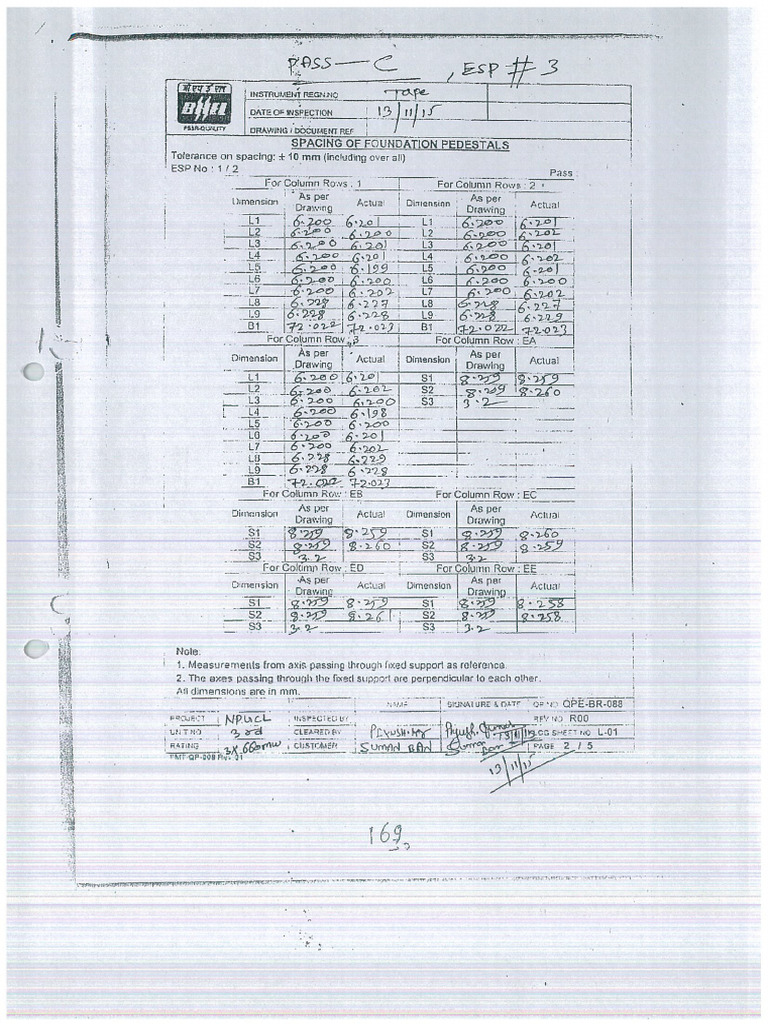 PASS — C , ESP # 3
बी एच ई एल
BHEL
PSSR-QUALITY
INSTRUMENT REGN.NO Tape
DATE OF INSPECTION 13/11/15
DRAWING / DOCUMENT REF
SPACING OF FOUNDATION PEDESTALS
Tolerance on spacing: ± 10 mm (including over all)
ESP No : 1 / 2 Pass
For Column Rows : 1 For Column Rows : 2
Dimension As per Drawing Actual Dimension As per Drawing Actual
L1 6.200 6.201 L1 6.200 6.201
L2 6.200 6.200 L2 6.200 6.202
L3 6.200 6.201 L3 6.200 6.201
L4 6.200 6.201 L4 6.200 6.202
L5 6.200 6.199 L5 6.200 6.201
L6 6.200 6.200 L6 6.200 6.200
L7 6.200 6.202 L7 6.200 6.202
L8 6.228 6.227 L8 6.228 6.227
L9 6.228 6.228 L9 6.228 6.229
B1 72.022 72.023 B1 72.022 72.023
For Column Row : 3 For Column Row : EA
Dimension As per Drawing Actual Dimension As per Drawing Actual
L1 6.200 6.201 S1 8.259 8.259
L2 6.200 6.202 S2 8.259 8.260
L3 6.200 6.200 S3 3.2
L4 6.200 6.198
L5 6.200 6.200
L6 6.200 6.201
L7 6.200 6.202
L8 6.228 6.229
L9 6.228 6.228
B1 72.022 72.023
For Column Row : EB For Column Row : EC
Dimension As per Drawing Actual Dimension As per Drawing Actual
S1 8.259 8.259 S1 8.259 8.260
S2 8.259 8.260 S2 8.259 8.259
S3 3.2 S3 3.2
For Column Row : ED For Column Row : EE
Dimension As per Drawing Actual Dimension As per Drawing Actual
S1 8.259 8.259 S1 8.259 8.258
S2 8.259 8.261 S2 8.259 8.258
S3 3.2 S3 3.2
Note:
1. Measurements from axis passing through fixed support as reference.
2. The axes passing through the fixed support are perpendicular to each other.
All dimensions are in mm.
NAME SIGNATURE & DATE QP NO QPE-BR-088
PROJECT NPUCL INSPECTED BY REV NO R00
UNIT NO 3rd CLEARED BY 13/11/15 LOG SHEET NO L-01
RATING 3X660MW CUSTOMER SUMAN Suman PAGE 2 / 5
13/11/15
169